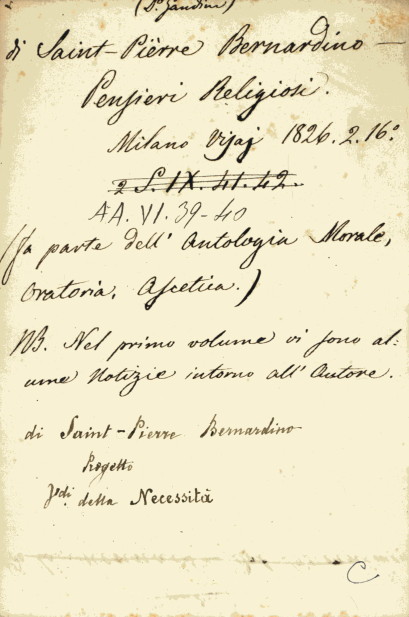 (Dª. Gandini)
di Saint-Piërre Bernardino —
Pensieri Religiosi.
Milano Visaj 1826. 2. 16.º
2 S. IX. 41. 42.
AA. VI. 39-40
(fa parte dell' Antologia Morale,
Oratoria, Ascetica.)
NB. Nel primo volume vi sono al-
cune Notizie intorno all' Autore.
di Saint-Pierre Bernardino
Progetto
Vedi della Necessità
C